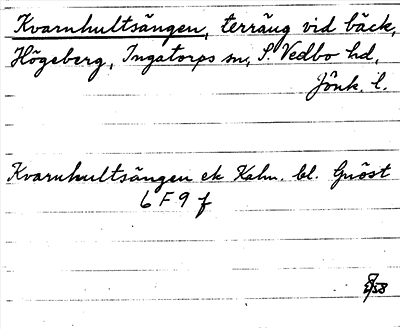 Kvarnhultsängen, terräng vid bäck,
Högeberg, Ingatorps sn, S. Vedbo hd,
Jönk. l.
Kvarnhultsängen ek Kalm. bl. Gnöst
6 F 9 f